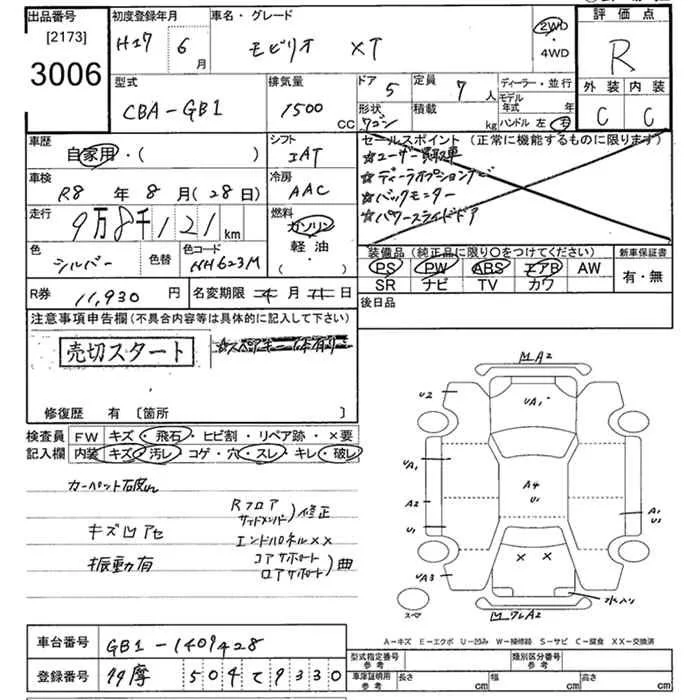 出品番号
[2173]
3006
初度登録年月
H17 年 6 月
車名・グレード
モビリオ XT
2WD
・4WD
評価点
R
外装 内装
C C
型式
CBA-GB1
排気量
1500 CC
ドア 5
定員 7 人
形状 ワゴン
積載 kg
ディーラー・並行
モデル年式 年
ハンドル 左 右
車歴
自家用・( )
シフト
IAT
車検
R8 年 8 月 (28日)
冷房
AAC
走行
9万8千121 km
燃料
ガソリン
軽油
・( )
色
シルバー
色替
色コード
NH623M
セールスポイント (正常に機能するものに限ります)
☆ユーザー買取車
☆ディーラオプションナビ
☆バックモニター
☆パワースライドドア
装備品 (純正品に限り○をつけてください)
PS PW ABS エアB AW
SR ナビ TV カワ
新車保証書
有・無
R券 11,930 円
名変期限 月 日
後日品
注意事項申告欄 (不具合内容等は具体的に記入して下さい)
売切スタート
修復歴 有 〔箇所 〕
検査員記入欄
FW キズ・飛石・ヒビ割・リペア跡・×要
内装 キズ・汚レ・コゲ・穴・スレ・キレ・破レ
カーペット破レ
キズ凹アセ
振動有
Rフロア
サイドメンバー)修正
エンドパネル××
コアサポート
ロアサポート)曲
M A2
U2
UA1
UA1
A2
U1
A4
U1
A1
U2
× ×
UA3
スペア
水入リ
A-キズ E-エクボ U-凹み W-補修跡 S-サビ C-腐食 XX-交換済
車台番号 GB1-1409428
登録番号 多摩 504 て 9330
型式指定番号 参考
類別区分番号 参考
車庫証明用 参考
長さ cm 幅 cm 高さ cm